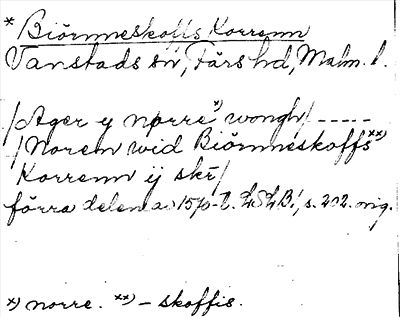 * Biörnneskolls Korrenn
Vanstads sn, Färs hd, Malm. l.
/Ager y nørre *) wongh/ -----
/Norenn wid Biörnneskoffs **)
Korrenn ij skr/
förra delen av 1570-t. s. 202. orig.
*) norre. **) – skoffis.